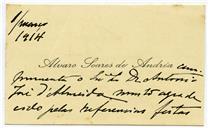 1/março
1914
Alvaro Soares de Andréa cum
primenta o Sr. Dr. Antonio
José d'Almeida muito agra
decido pelas referencias feitas